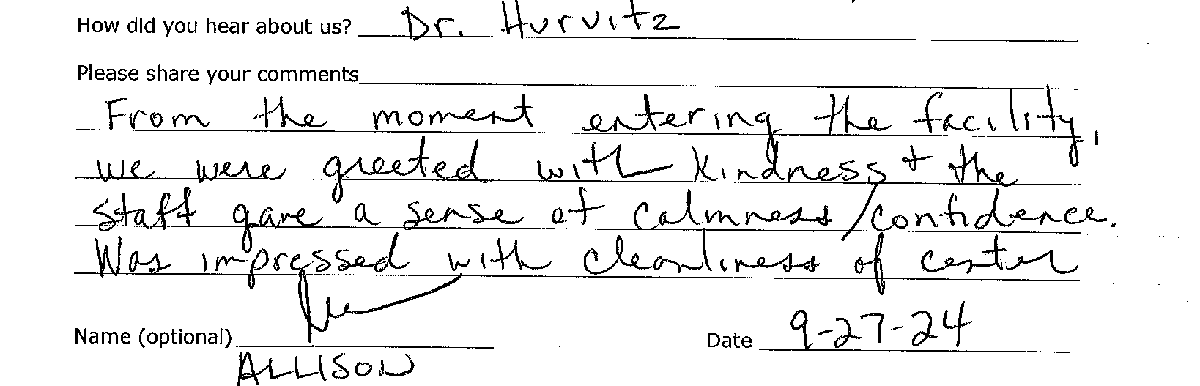 How did you hear about us? Dr. Hurvitz
Please share your comments
From the moment entering the facility,
we were greeted with kindness + the
staff gave a sense of calmness/confidence.
Was impressed with cleanliness of center
Name (optional) Date 9-27-24
ALLISON